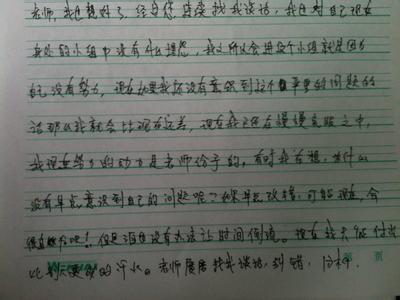 老师,我也想对了。经过您连续找我谈话,我也对自己现在
来她的小组中没有什么理想,我之所以会进这个小组就是因为
自己没有努力,现在如果我还没有意识到这个事里的问题的
话那么我就会比现在还差,现在我正在慢慢克服之中,
我现在努力的动力是老师给予的,有时我在想,为什么
没有早点意识到自己的问题呢?如果早点改错,可能现在,会
很 吧!但是泪也没有办法让时间倒流。现在我只能付出
比别人更 的汗水。老师废话找我谈话,别错,
第 页